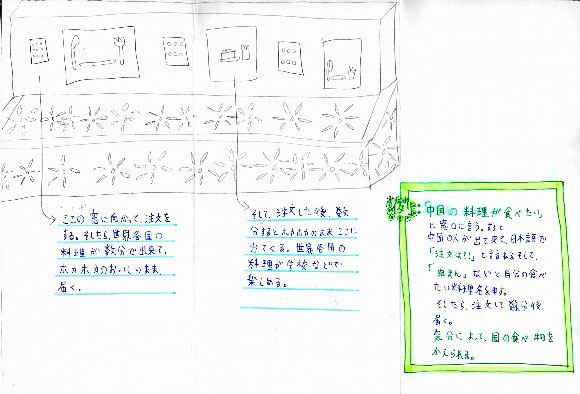 ここの窓に向かって、注文を
する。そしたら、世界各国の
料理が数分で出来て、
ホカホカのおいしいまま
届く。
そして、注文した後、数
分するとホカホカのままここに
出てくる。世界各国の
料理が学校などで
楽しめる。
例:「中国の料理が食べたい」
と窓口に言う。すると
中国の人が出て来て、日本語で
「注文は?」と言う。そして、
「   」などと自分の食べ
たい料理名を申す。
そしたら、注文して数分後
届く。
気分によって、国の食べ物を
かえられる。